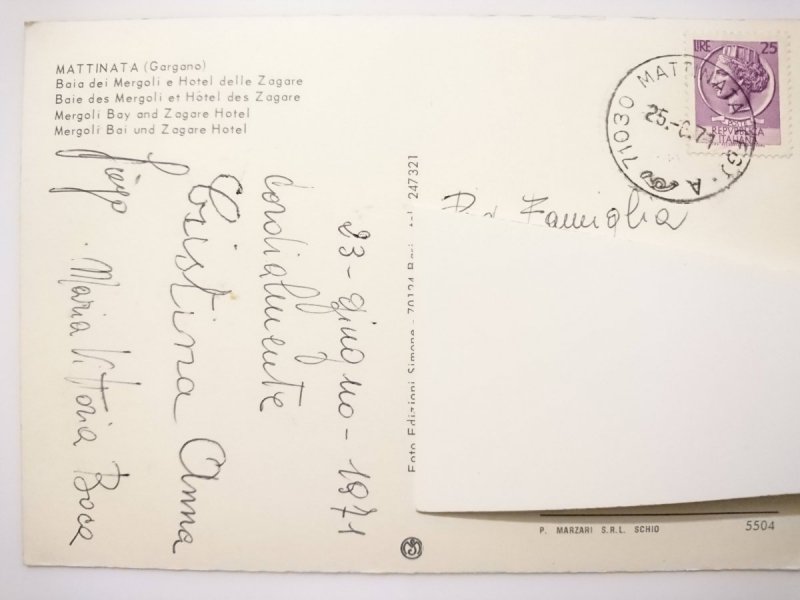 MATTINATA (Gargano)
Baia dei Mergoli e Hotel delle Zagare
Baie des Mergoli et Hôtel des Zagare
Mergoli Bay and Zagare Hotel
Mergoli Bai und Zagare Hotel
23-giugno-1971
Cordialmente
Cristina Anna
Maria Vittoria
Foto Edizioni Simone - 70124 Bari - tel 247321
LIRE 25
REPUBBLICA
ITALIANA
71030 MATTINATA (FG). A
71
Famiglia
P. MARZARI S.R.L. SCHIO
5504